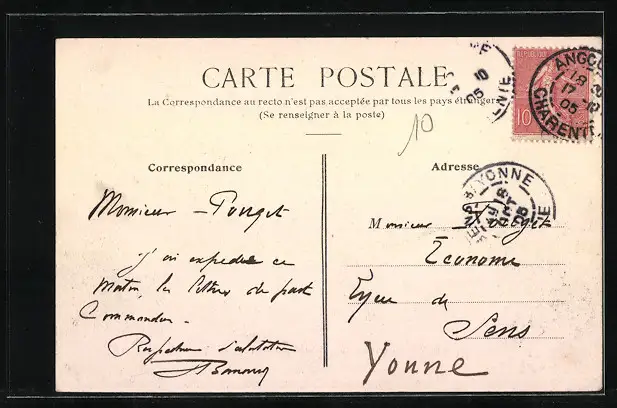 CARTE POSTALE
La Correspondance au recto n'est pas acceptée par tous les pays étrangers
(Se renseigner à la poste)
10
Correspondance
Monsieur Pouget
j'ai expedié ce
matin, les lettres de part
Commandées.
Respectueuses salutations
Adresse
Monsieur Pouget
Économe
Lycée de
Sens
Yonne
10
ANGOU
18
17 -12
05
CHARENTE
10
05
YONNE
18
05